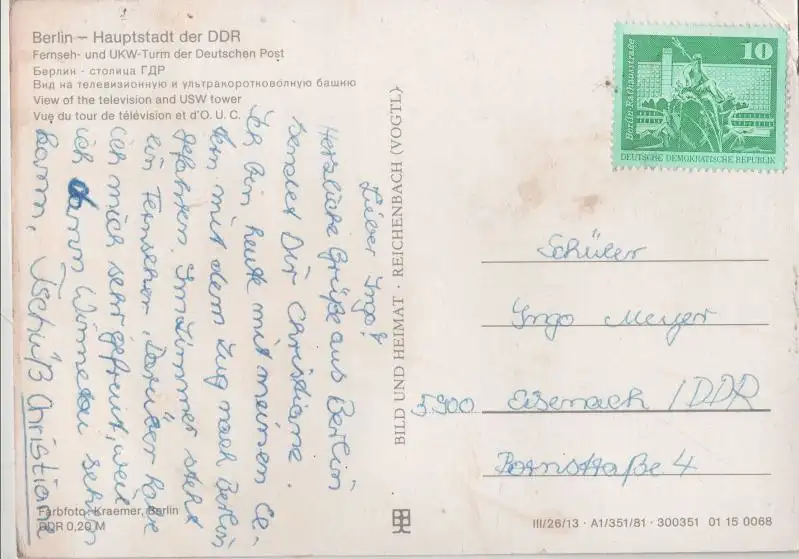 Berlin – Hauptstadt der DDR
Fernseh- und UKW-Turm der Deutschen Post
Берлин - столица ГДР
Вид на телевизионную и ультракоротковолную башню
View of the television and USW tower
Vue du tour de télévision et d'O. U. C.
Lieber Ingo!
Herzliche Grüße aus Berlin
sendet Dir Christiane.
Ich bin heute mit meinen El-
tern mit dem Zug nach Berlin
gefahren. Im Zimmer steht
ein Fernseher. Darüber habe
ich mich sehr gefreut, weil
ich dann Winnetou sehen
kann. Tschüß Christiane
Farbfoto: Kraemer, Berlin
DDR 0,20 M
BILD UND HEIMAT · REICHENBACH (VOGTL)
Berlin-Rathausstraße
10
DEUTSCHE DEMOKRATISCHE REPUBLIK
Schüler
Ingo Meyer
5900 Eisenach / DDR
4
III/26/13 · A1/351/81 · 300351 01 15 0068